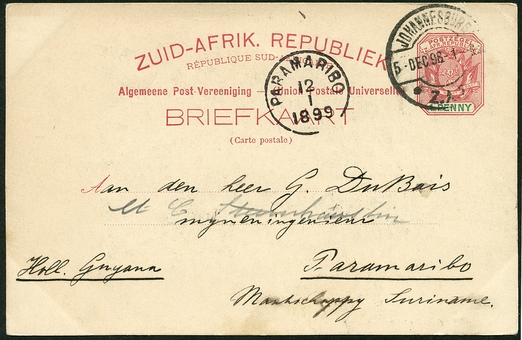 ZUID-AFRIK. REPUBLIEK
RÉPUBLIQUE SUD-
Algemeene Post-Vereeniging — Union Postale Universelle
BRIEFKAART
(Carte postale)
PARAMARIBO
12
1
1899
JOHANNESBURG
5-DEC 98-1
Z.A.
PENNY
Aan den heer G. DuBois
mijneningenieur
Holl. Guyana
Paramaribo
Maatschappy Suriname.